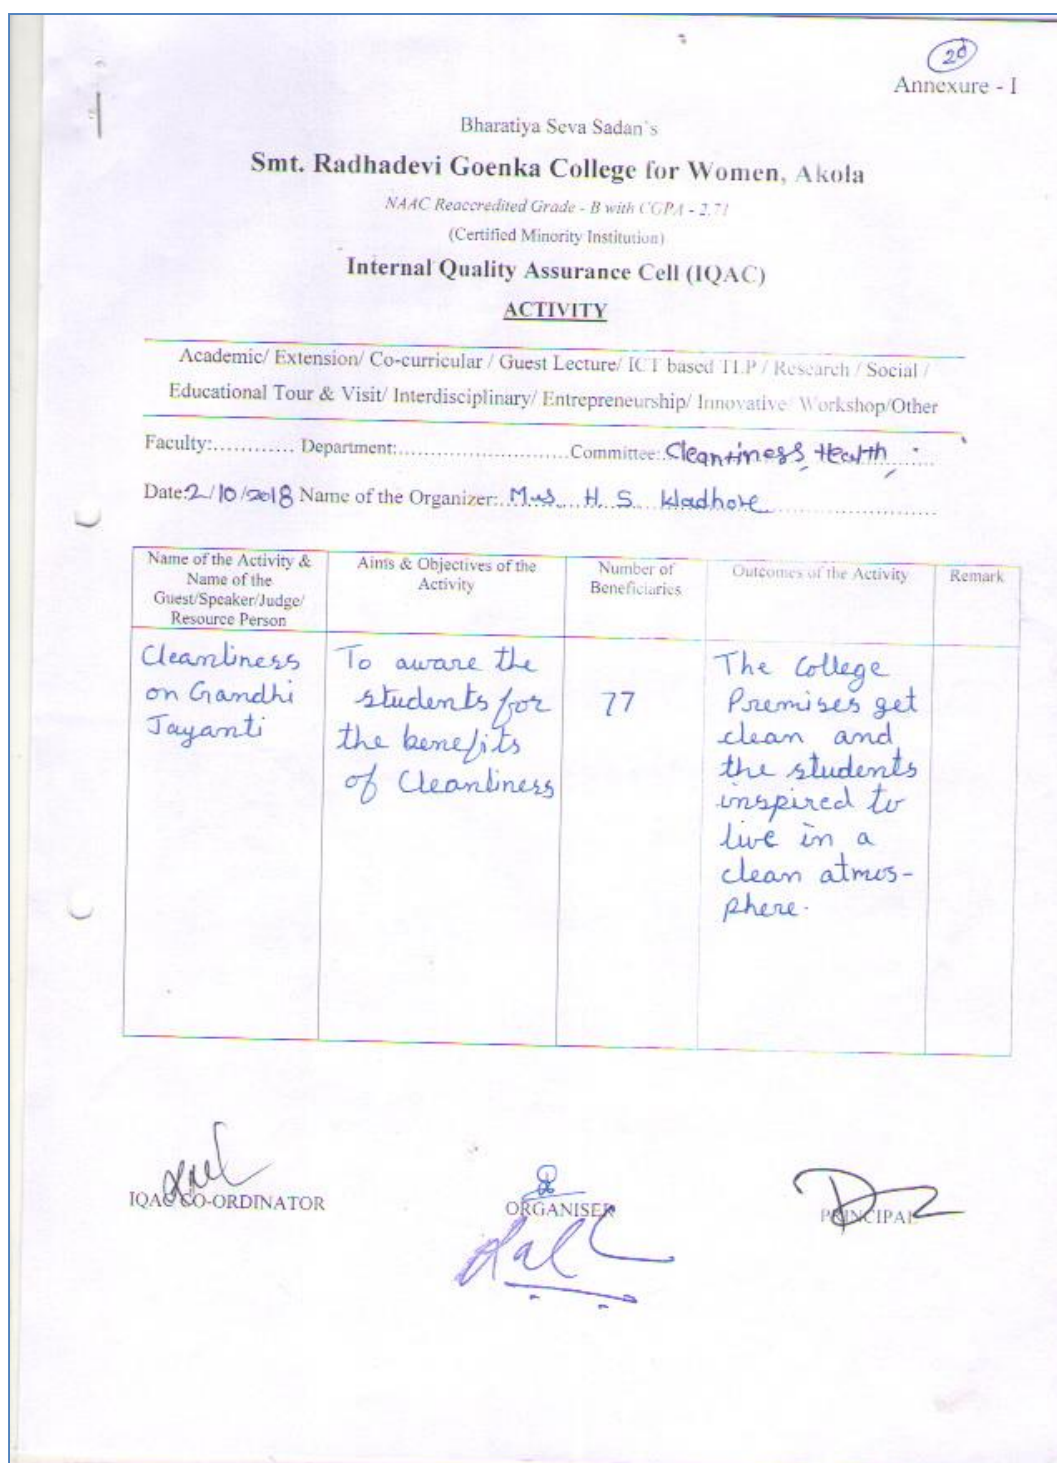 20
Annexure - I
Bharatiya Seva Sadan's
Smt. Radhadevi Goenka College for Women, Akola
NAAC Reaccredited Grade - B with CGPA - 2.71
(Certified Minority Institution)
Internal Quality Assurance Cell (IQAC)
ACTIVITY
Academic/ Extension/ Co-curricular / Guest Lecture/ ICT based TLP / Research / Social /
Educational Tour & Visit/ Interdisciplinary/ Entrepreneurship/ Innovative/ Workshop/Other
Faculty:............ Department:.........................Committee: Cleantiness, Health
Date:2/10/2018 Name of the Organizer: Mrs H. S.
Name of the Activity &
Name of the
Guest/Speaker/Judge/
Resource Person
Aims & Objectives of the
Activity
Number of
Beneficiaries
Outcomes of the Activity
Remark
Cleanliness
on Gandhi
Jayanti
To aware the
students for
the benefits
of Cleanliness
77
The College
Premises get
clean and
the students
inspired to
live in a
clean atmos-
phere.
IQAC CO-ORDINATOR
ORGANISER
PRINCIPAL